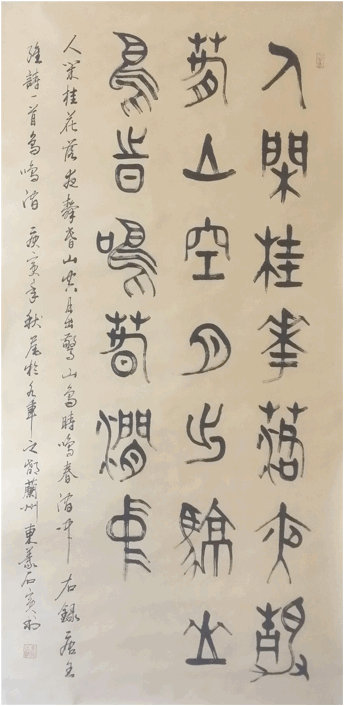 人閒桂華落夜靜
春山空月出驚山
鳥旹鳴春澗中
人閑桂花落夜靜春山空月出驚山鳥時鳴春澗中 右錄唐王
維詩一首鳥鳴澗 庚寅年秋尾於 之 蘭州 東 石寅